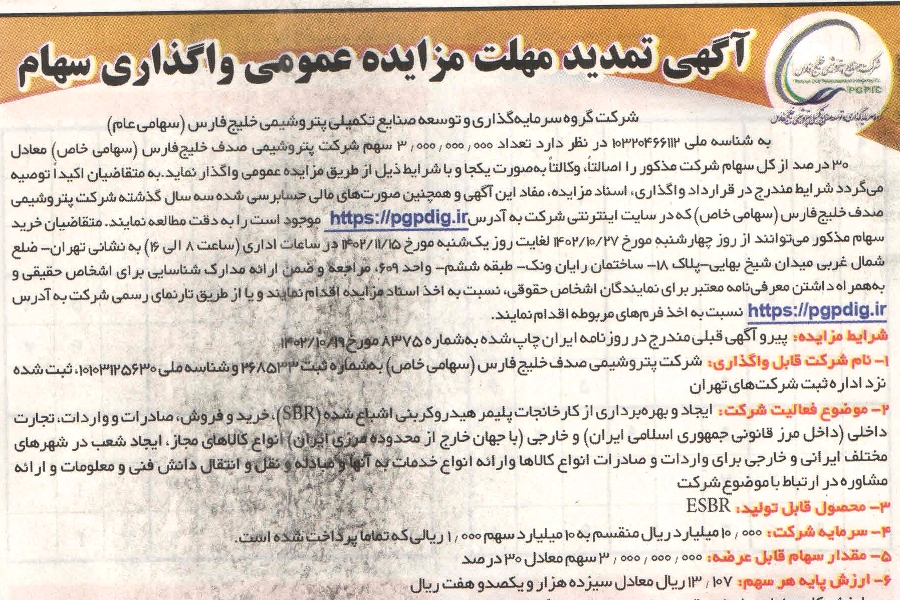 آگهی تمدید مهلت مزایده عمومی واگذاری سهام
PGPIC
شرکت گروه سرمایه‌گذاری و توسعه صنایع تکمیلی پتروشیمی خلیج فارس (سهامی عام)
به شناسه ملی ۱۰۳۲۰۴۶۶۱۱۲ در نظر دارد تعداد ۳٫۰۰۰٫۰۰۰٫۰۰۰ سهم شرکت پتروشیمی صدف خلیج فارس (سهامی خاص) معادل
۳۰ درصد از کل سهام شرکت مذکور را اصالتاً، وکالتاً به‌صورت یکجا و با شرایط ذیل از طریق مزایده عمومی واگذار نماید. به متقاضیان اکیداً توصیه
می‌گردد شرایط مندرج در قرارداد واگذاری، اسناد مزایده، مفاد این آگهی و همچنین صورت‌های مالی حسابرسی شده سه سال گذشته شرکت پتروشیمی
صدف خلیج فارس (سهامی خاص) که در سایت اینترنتی شرکت به آدرس https://pgpdig.ir موجود است را به دقت مطالعه نمایند. متقاضیان خرید
سهام مذکور می‌توانند از روز چهارشنبه مورخ ۱۴۰۲/۱۰/۲۷ لغایت روز یک‌شنبه مورخ ۱۴۰۲/۱۱/۱۵ در ساعات اداری (ساعت ۸ الی ۱۶) به نشانی تهران- ضلع
شمال غربی میدان شیخ بهایی-پلاک ۱۸- ساختمان رایان ونک- طبقه ششم- واحد ۶۰۹، مراجعه و ضمن ارائه مدارک شناسایی برای اشخاص حقیقی و
به‌همراه داشتن معرفی‌نامه معتبر برای نمایندگان اشخاص حقوقی، نسبت به اخذ اسناد مزایده اقدام نمایند و یا از طریق تارنمای رسمی شرکت به آدرس
https://pgpdig.ir نسبت به اخذ فرم‌های مربوطه اقدام نمایند.
شرایط مزایده: پیرو آگهی قبلی مندرج در روزنامه ایران چاپ شده به‌شماره ۸۳۷۵ مورخ ۱۴۰۲/۱۰/۱۹
۱- نام شرکت قابل واگذاری: شرکت پتروشیمی صدف خلیج فارس (سهامی خاص) به‌شماره ثبت ۳۶۸۵۳۳ و شناسه ملی ۱۰۱۰۳۱۲۵۶۳۰، ثبت شده
نزد اداره ثبت شرکت‌های تهران
۲- موضوع فعالیت شرکت: ایجاد و بهره‌برداری از کارخانجات پلیمر هیدروکربنی اشباع شده (SBR)، خرید و فروش، صادرات و واردات، تجارت
داخلی (داخل مرز قانونی جمهوری اسلامی ایران) و خارجی (با جهان خارج از محدوده مرزی ایران) انواع کالاهای مجاز، ایجاد شعب در شهرهای
مختلف ایرانی و خارجی برای واردات و صادرات انواع کالاها و ارائه انواع خدمات به آنها و مبادله و نقل و انتقال دانش فنی و معلومات و ارائه
مشاوره در ارتباط با موضوع شرکت
۳- محصول قابل تولید: ESBR
۴- سرمایه شرکت: ۱۰٫۰۰۰ میلیارد ریال منقسم به ۱۰ میلیارد سهم ۱٫۰۰۰ ریالی که تماماً پرداخت شده است.
۵- مقدار سهام قابل عرضه: ۳٫۰۰۰٫۰۰۰٫۰۰۰ سهم معادل ۳۰ درصد
۶- ارزش پایه هر سهم: ۱۳٫۱۰۷ ریال معادل سیزده هزار و یکصد و هفت ریال